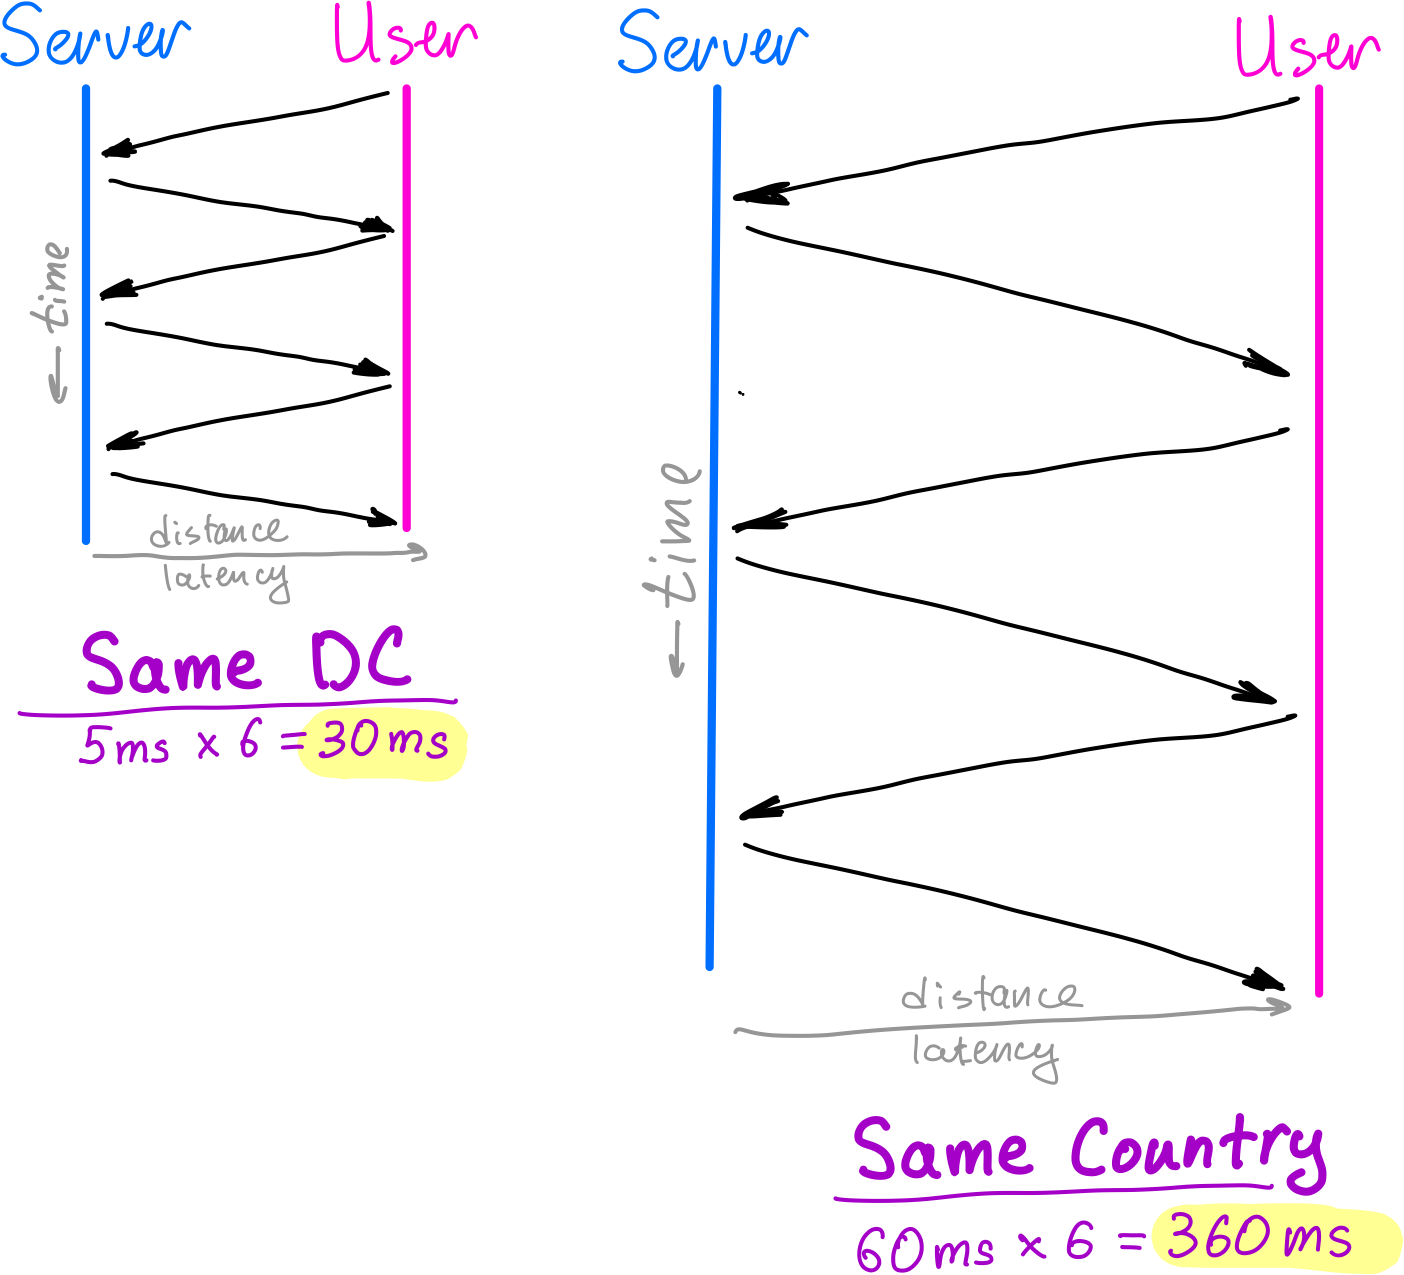 Server User
← time
distance
latency
Same DC
5ms × 6 = 30ms
Server User
← time
distance
latency
Same Country
60ms × 6 = 360ms